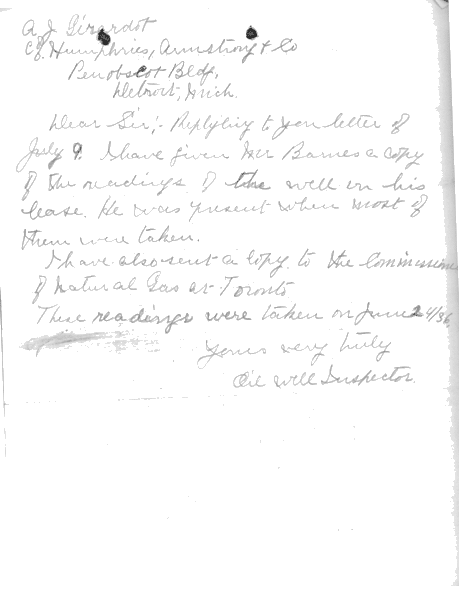 A. J. Girardot
c/o Humphries, Armstrong & Co
Penobscot Bldg,
Detroit, Mich.
Dear Sir;- Replying to you letter of
July 9. I have given Mr Barnes a copy
of the readings of the well on his
lease. He was present when most of
them were taken.
I have also sent a copy to the Commissione
of Natural Gas at Toronto
These readings were taken on June 24/36
Yours very truly
Oil well Inspector.